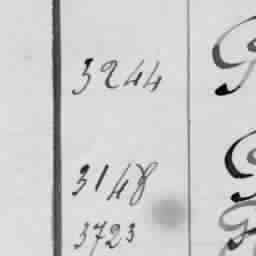 3244
3148
3723